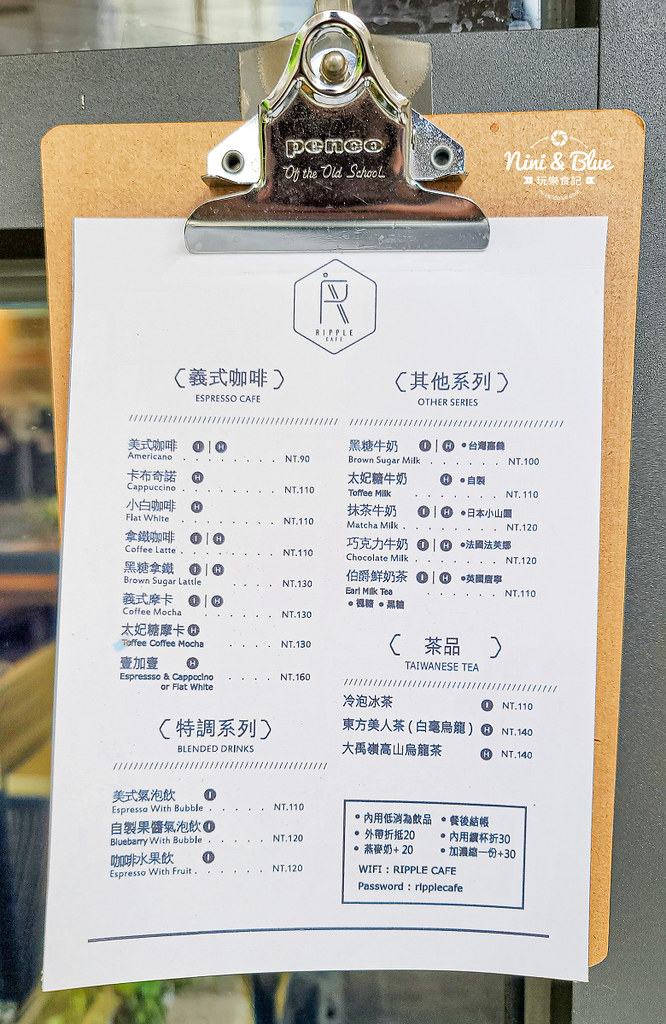 penco
Of the Old School
Nini & Blue
玩樂食記
R
RIPPLE
CAFE
義式咖啡
ESPRESSO CAFE
美式咖啡 I | H
Americano . . . . . . . . . NT.90
卡布奇諾 H
Cappuccino . . . . . . . . NT.110
小白咖啡 H
Flat White . . . . . . . . NT.110
拿鐵咖啡 I | H
Coffee Latte . . . . . . . . NT.110
黑糖拿鐵 I | H
Brown Sugar Lattle . . . . . NT.130
義式摩卡 I | H
Coffee Mocha . . . . . . . NT.130
太妃糖摩卡 H
Toffee Coffee Mocha . . . . NT.130
壹加壹 H
Espressso & Cappccino . . . . NT.160
or Flat White
特調系列
BLENDED DRINKS
美式氣泡飲 I
Espresso With Bubble . . . . . NT.110
自製果醬氣泡飲 I
Bluebarry With Bubble . . . . . NT.120
咖啡水果飲 I
Espresso With Fruit . . . . . . NT.120
其他系列
OTHER SERIES
黑糖牛奶 I | H ●台灣嘉義
Brown Sugar Milk . . . . . . NT.100
太妃糖牛奶 H ●自製
Toffee Milk . . . . . . . NT.110
抹茶牛奶 I | H ●日本小山園
Matcha Milk . . . . . . . . NT.120
巧克力牛奶 I | H ●法國法芙娜
Chocolate Milk . . . . . . . NT.120
伯爵鮮奶茶 I | H ●英國唐寧
Earl Milk Tea . . . . . . . NT.110
● 楓糖 ● 黑糖
茶品
TAIWANESE TEA
冷泡冰茶 I NT.110
東方美人茶 ( 白毫烏龍 ) H NT.140
大禹嶺高山烏龍茶 H NT.140
● 內用低消為飲品 ● 餐後結帳
● 外帶折抵20 ● 內用續杯折30
● 燕麥奶+ 20 ● 加濃縮一份+30
WIFI : RIPPLE CAFE
Password : ripplecafe